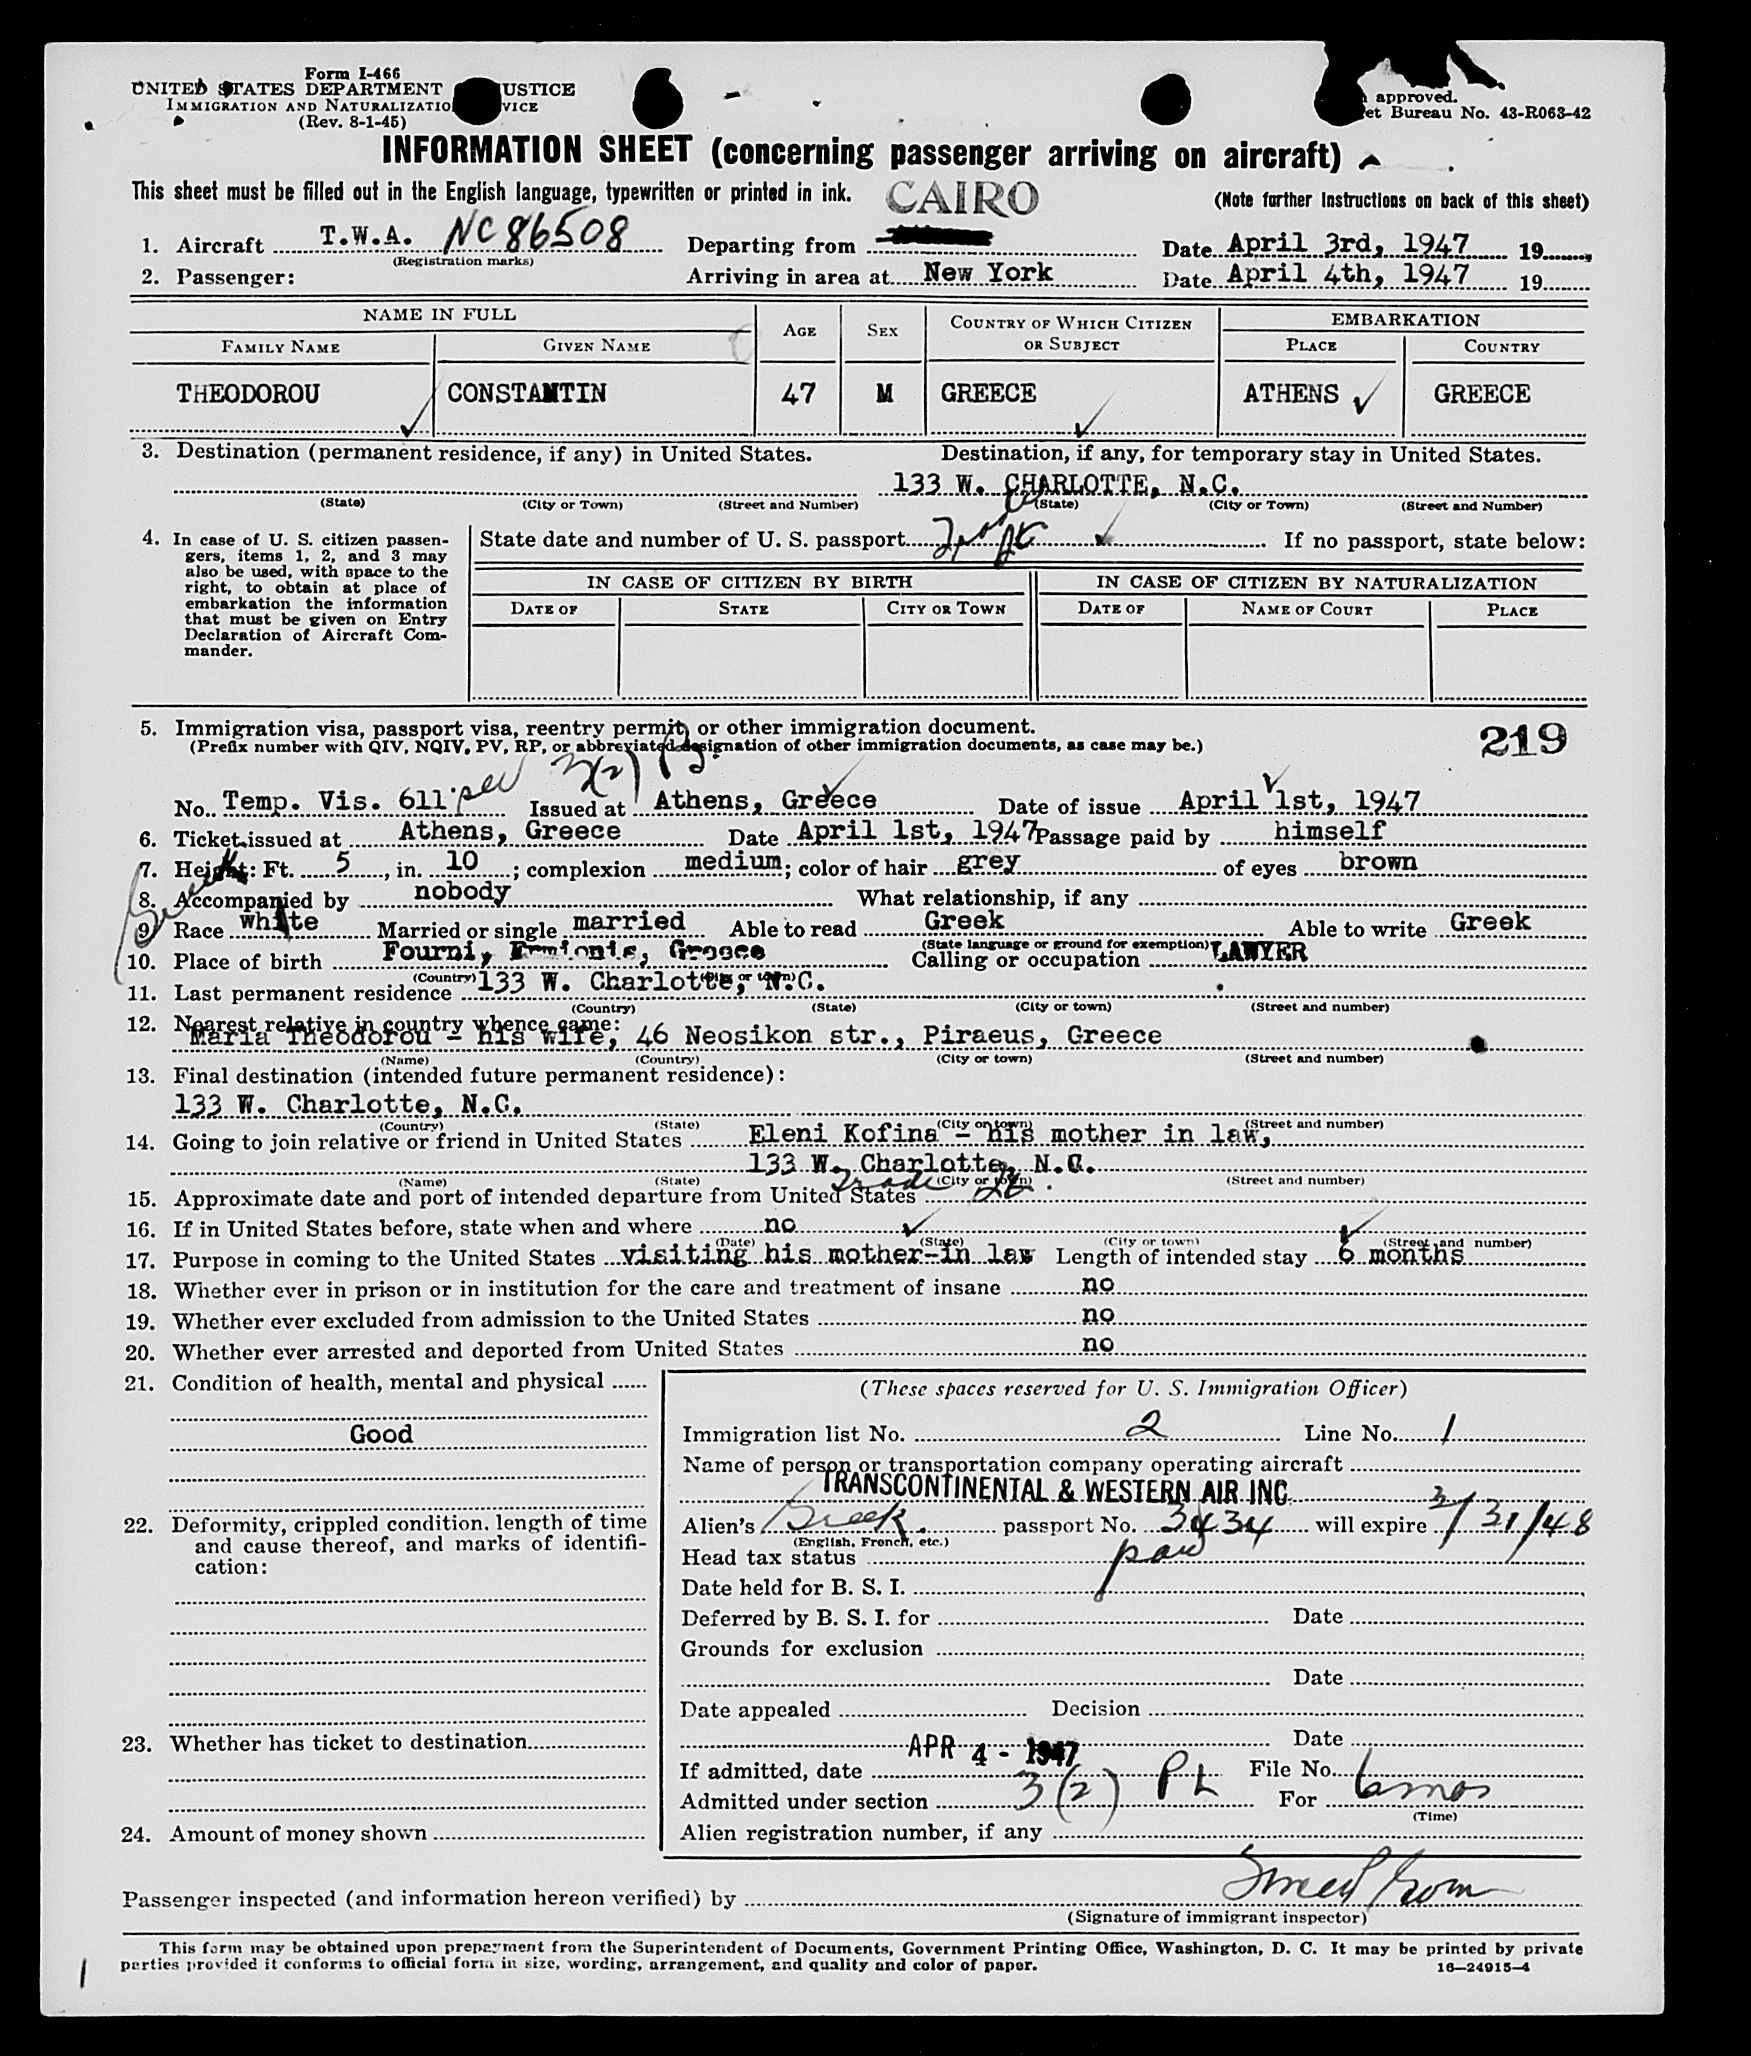 Form I-466
UNITED STATES DEPARTMENT USTICE
IMMIGRATION AND NATURALIZATIO VICE
(Rev. 8-1-45)
approved.
et Bureau No. 43-R063-42
INFORMATION SHEET (concerning passenger arriving on aircraft)
This sheet must be filled out in the English language, typewritten or printed in ink. CAIRO (Note further Instructions on back of this sheet)
1. Aircraft T.W.A. NC 86508 Departing from Date April 3rd, 1947 19
(Registration marks)
2. Passenger: Arriving in area at New York Date April 4th, 1947 19
NAME IN FULL AGE SEX COUNTRY OF WHICH CITIZEN OR SUBJECT EMBARKATION
FAMILY NAME GIVEN NAME PLACE COUNTRY
THEODOROU CONSTANTIN 47 M GREECE ATHENS GREECE
3. Destination (permanent residence, if any) in United States. Destination, if any, for temporary stay in United States.
133 W. CHARLOTTE, N.C.
(State) (City or Town) (Street and Number) (State) (City or Town) (Street and Number)
4. In case of U. S. citizen passengers, items 1, 2, and 3 may also be used, with space to the right, to obtain at place of embarkation the information that must be given on Entry Declaration of Aircraft Commander.
State date and number of U. S. passport If no passport, state below:
IN CASE OF CITIZEN BY BIRTH IN CASE OF CITIZEN BY NATURALIZATION
DATE OF STATE CITY OR TOWN DATE OF NAME OF COURT PLACE
5. Immigration visa, passport visa, reentry permit, or other immigration document.
(Prefix number with QIV, NQIV, PV, RP, or abbreviated designation of other immigration documents, as case may be.)
219
3(2)
No. Temp. Vis. 611 Issued at Athens, Greece Date of issue April 1st, 1947
6. Ticket issued at Athens, Greece Date April 1st, 1947 Passage paid by himself
7. Height: Ft. 5, in. 10; complexion medium; color of hair grey of eyes brown
8. Accompanied by nobody What relationship, if any
Greek
9. Race white Married or single married Able to read Greek Able to write Greek
(State language or ground for exemption)
10. Place of birth Fourni, Ermionis, Greece Calling or occupation LAWYER
(Country) (City or town)
11. Last permanent residence 133 W. Charlotte, N.C.
(Country) (State) (City or town) (Street and number)
12. Nearest relative in country whence came:
Maria Theodorou - his wife, 46 Neosikon str., Piraeus, Greece
(Name) (Country) (City or town) (Street and number)
13. Final destination (intended future permanent residence):
133 W. Charlotte, N.C.
(Country) (State) (City or town) (Street and number)
14. Going to join relative or friend in United States Eleni Kofina - his mother in law,
133 W. Charlotte, N.C.
(Name) (State) (City or town) (Street and number)
15. Approximate date and port of intended departure from United States
16. If in United States before, state when and where no
(Date) (State) (City or town) (Street and number)
17. Purpose in coming to the United States visiting his mother-in law Length of intended stay 6 months
18. Whether ever in prison or in institution for the care and treatment of insane no
19. Whether ever excluded from admission to the United States no
20. Whether ever arrested and deported from United States no
21. Condition of health, mental and physical
Good
22. Deformity, crippled condition, length of time and cause thereof, and marks of identification:
23. Whether has ticket to destination
24. Amount of money shown
(These spaces reserved for U. S. Immigration Officer)
Immigration list No. 2 Line No. 1
Name of person or transportation company operating aircraft
TRANSCONTINENTAL & WESTERN AIR INC.
Alien's Greek passport No. 3434 will expire 3/31/48
(English, French, etc.)
Head tax status paid
Date held for B. S. I.
Deferred by B. S. I. for Date
Grounds for exclusion
Date
Date appealed Decision
Date
If admitted, date APR 4 - 1947 File No.
Admitted under section 3(2) For 6 mos
(Time)
Alien registration number, if any
Passenger inspected (and information hereon verified) by
(Signature of immigrant inspector)
This form may be obtained upon prepayment from the Superintendent of Documents, Government Printing Office, Washington, D. C. It may be printed by private
parties provided it conforms to official form in size, wording, arrangement, and quality and color of paper.
16—24915-4